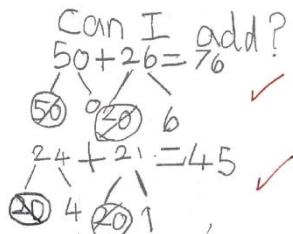 Can I add?
50+26=76
50 0 20 6
24+21=45
20 4 20 1